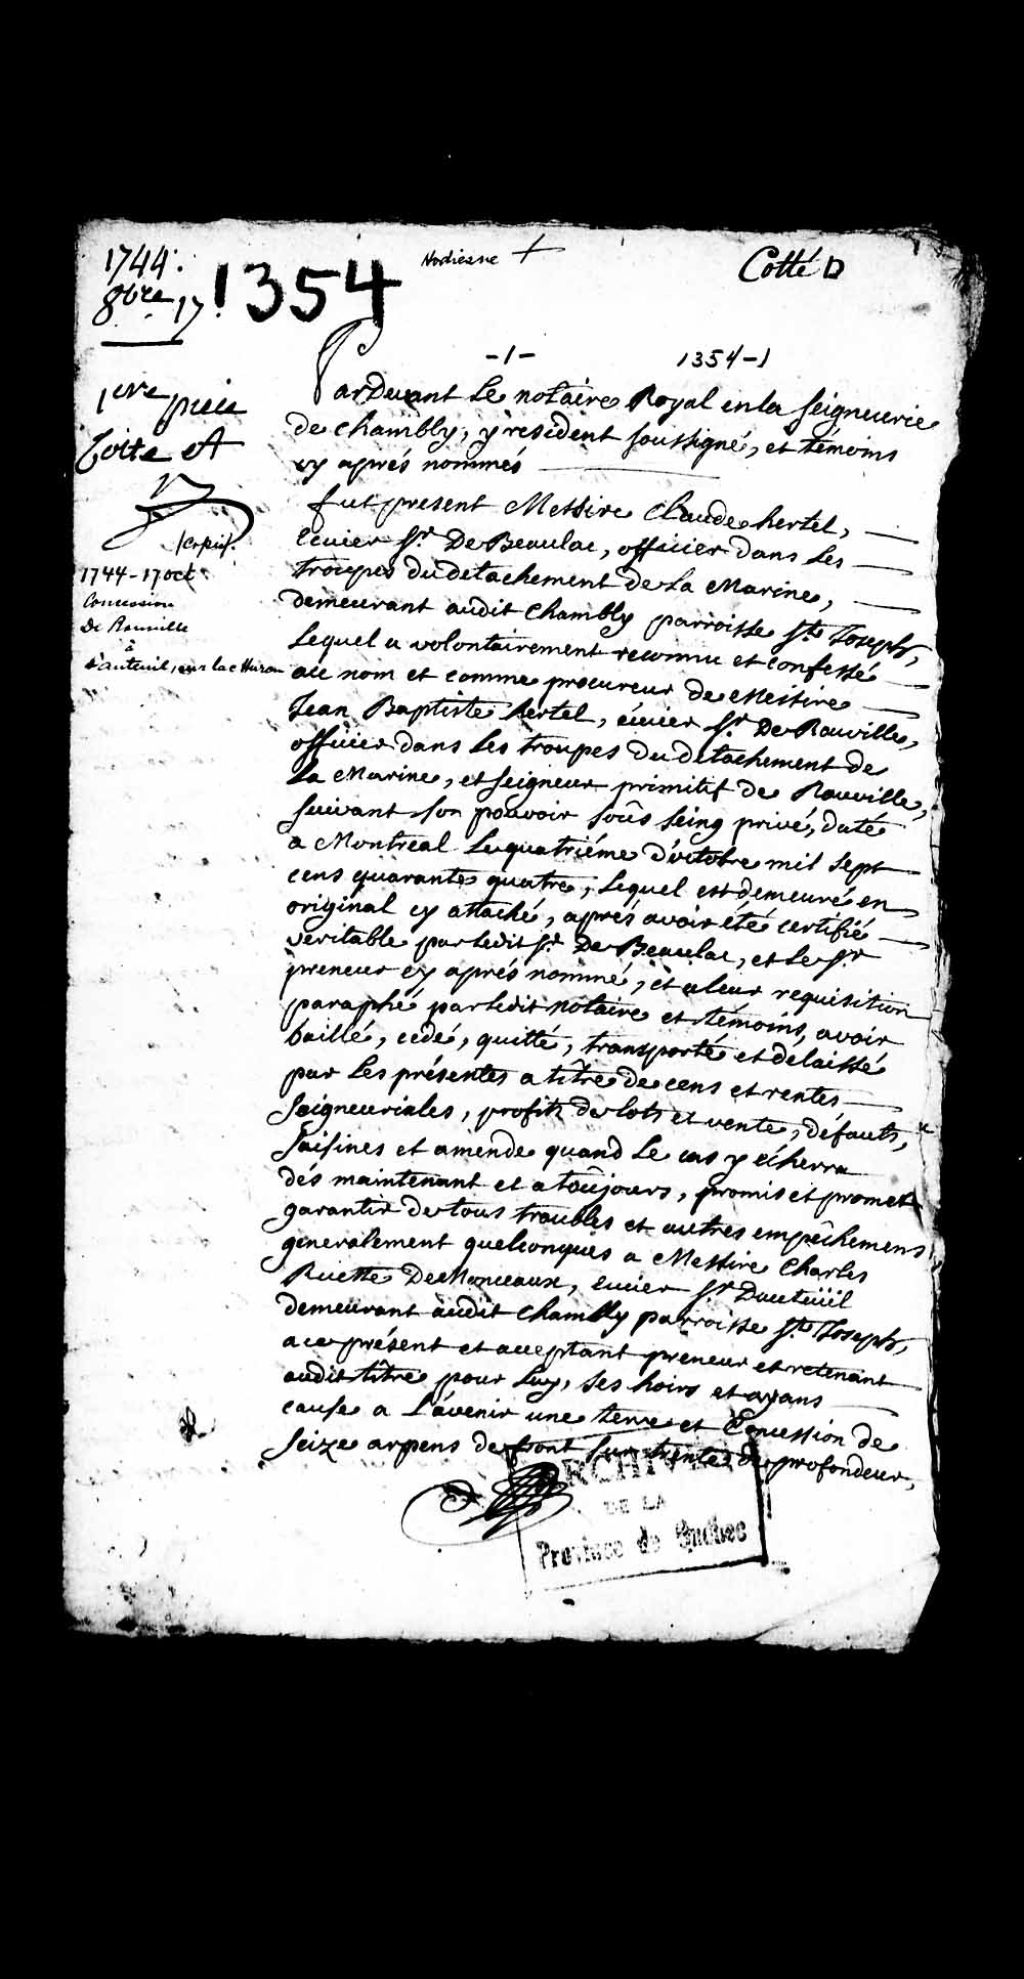 1744.
8bre 17
1354
Nodiesne +
Cotté D
-1-
1354-1
1ere piece
Cotte A
1744-17 oct.
Concession
De Rouville
à
d'auteuil, sur la c Huron
Par Devant Le notaire Royal en la Seigneurie
de Chambly, y resident soussigné, et témoins
cy aprés nommés
fut present Messire Claude hertel,
Ecuier Sr. De Beaulac, officier dans Les
troupes du detachement de La Marine,
demeurant audit Chambly parroisse St. Joseph,
Lequel a volontairement reconnu et confessé
au nom et comme procureur de Messire
Jean Baptiste hertel, écuier Sr. De Rouville,
officier dans Les troupes du detachement de
La Marine, et Seigneur primitif de Rouville,
suivant son pouvoir soûs seing privé, daté
a Montreal Le quatriéme d'octobre mil sept
cens quarante quatre, Lequel est demeuré en
original cy attaché, aprés avoir été certifié
veritable par Ledit Sr. De Beaulac, et Le Sr
preneur cy aprés nommé, et a leur requisition
paraphé par Ledit notaire et témoins, avoir
baillé, cedé, quitté, transporté et delaissé
par Les présentes a tître de cens et rentes
Seigneuriales, profits de lots et vente, défauts,
Saisines et amende quand Le cas y écherra
dés maintenant et a toûjours, promis et promet
garantir de tous troubles et autres empêchemens
generalement quelconques a Messire Charles
Ruette De Monceaux, ecuier Sr Dauteüil
demeurant audit Chambly parroisse St. Joseph,
a ce présent et acceptant preneur et retenant
audit tître pour Luy, ses hoirs et ayans
cause a L'avenir une terre et Concession de
Seize arpens de front sur trente de profondeur,
ARCHIVES
DE LA
Province de Québec